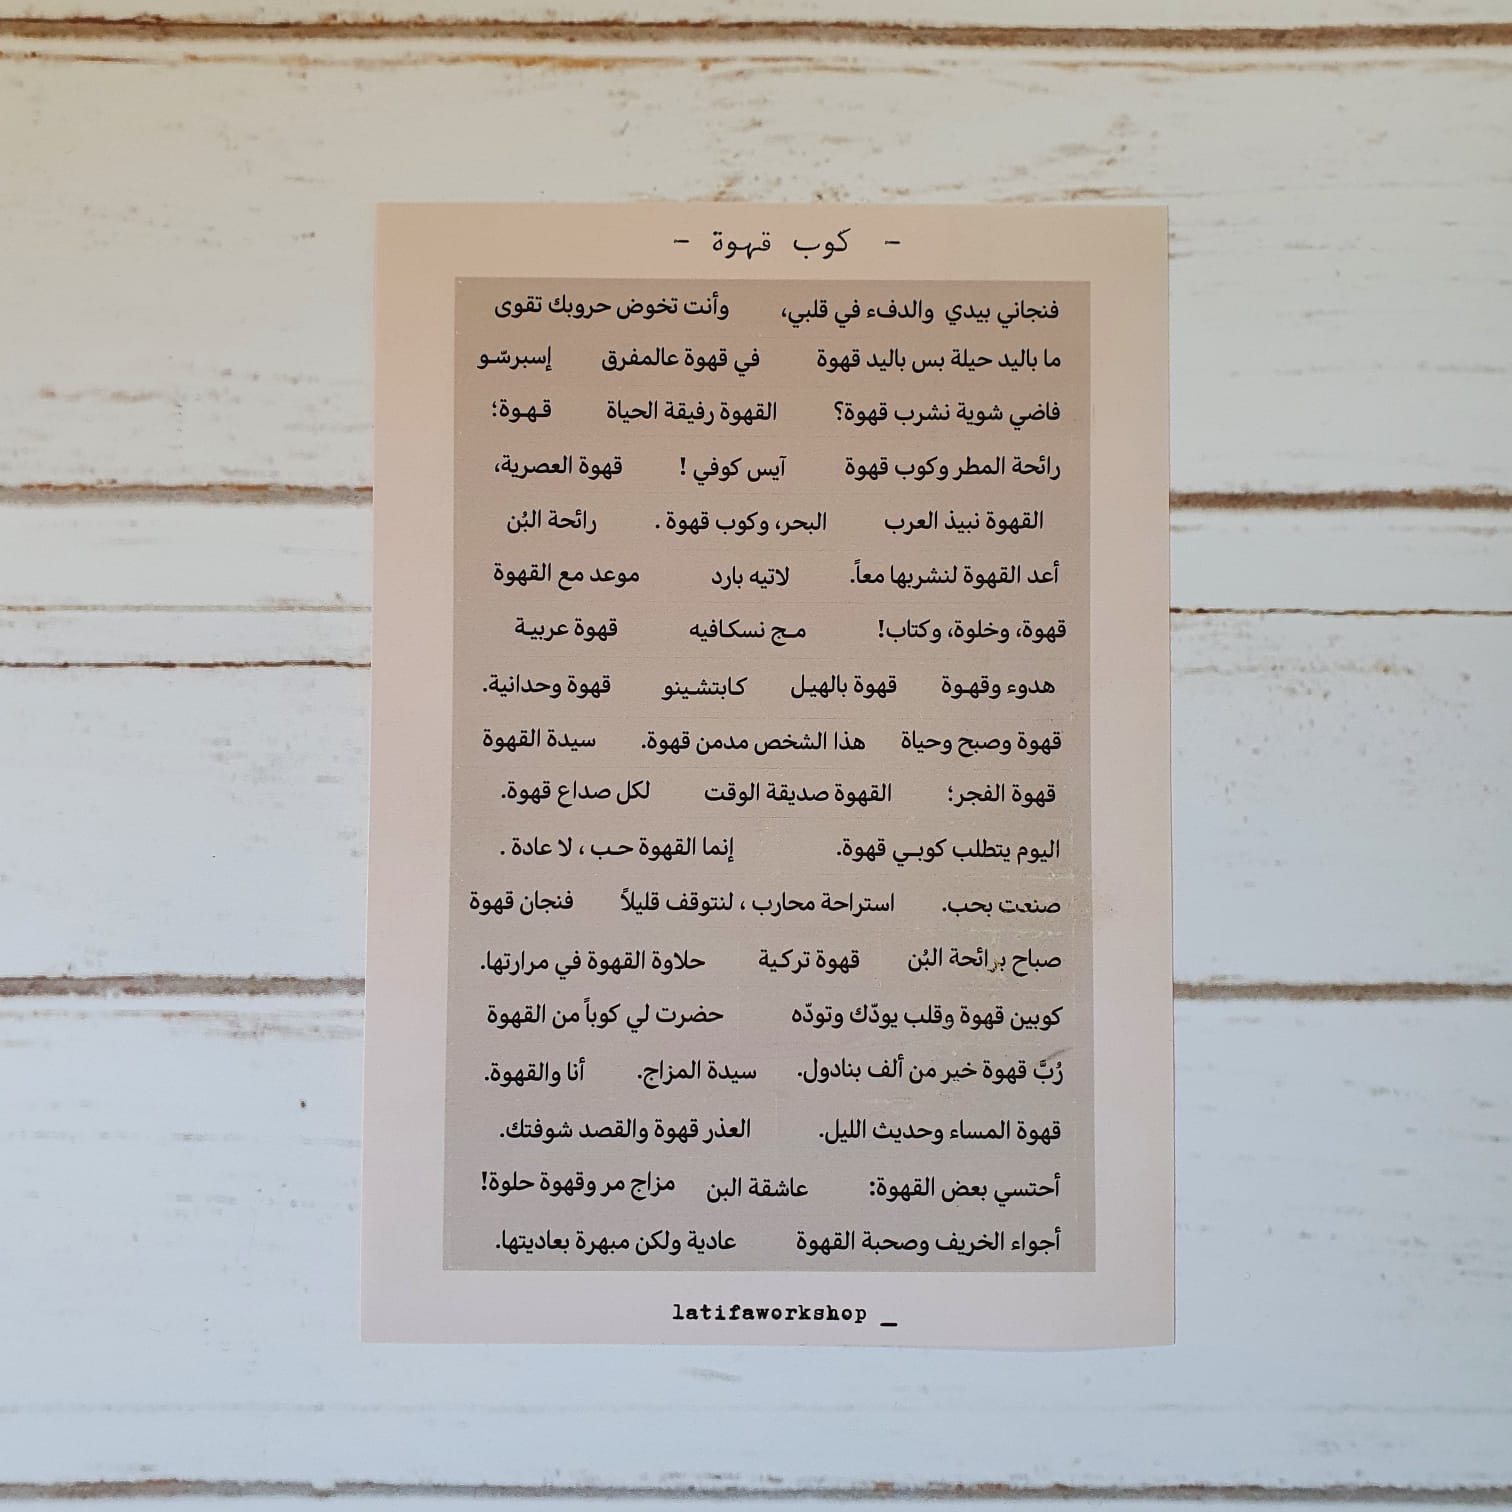 - كوب قهوة -
فنجاني بيدي والدفء في قلبي، وأنت تخوض حروبك تقوى
ما باليد حيلة بس باليد قهوة في قهوة عالمفرق إسبرسّو
فاضي شوية نشرب قهوة؟ القهوة رفيقة الحياة قـهـوة؛
رائحة المطر وكوب قهوة آيس كوفي ! قهوة العصرية،
القهوة نبيذ العرب البحر، وكوب قهوة . رائحة البُن
أعد القهوة لنشربها معاً. لاتيه بارد موعد مع القهوة
قهوة، وخلوة، وكتاب! مـج نسكـافيه قهوة عربيـة
هدوء وقهـوة قهوة بالهيـل كـابتشـينو قهوة وحدانية.
قهوة وصبح وحياة هذا الشخص مدمن قهوة. سيدة القهوة
قهوة الفجر؛ القهوة صديقة الوقت لكل صداع قهوة.
اليوم يتطلب كوبـي قهوة. إنما القهوة حـب ، لا عادة .
صنعت بحب. استراحة محارب ، لنتوقف قليلاً فنجان قهوة
صباح برائحة البُن قهوة تركـية حلاوة القهوة في مرارتها.
كوبين قهوة وقلب يودّك وتودّه حضرت لي كوباً من القهوة
رُبَّ قهوة خير من ألف بنادول. سيدة المزاج. أنا والقهوة.
قهوة المساء وحديث الليل. العذر قهوة والقصد شوفتك.
أحتسي بعض القهوة: عاشقة البن مزاج مر وقهوة حلوة!
أجواء الخريف وصحبة القهوة عادية ولكن مبهرة بعاديتها.
latifaworkshop _